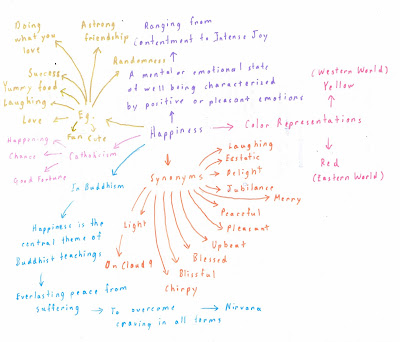 Doing
what you
love
A strong
friendship
Randomness
Success
Yummy food
Laughing
Love
Eg.
Fun
Cute
Ranging from
contentment to Intense Joy
A mental or emotional state
of well being characterized
by positive or pleasant emotions
Happiness
Color Representations
(Western World)
Yellow
Red
(Eastern World)
Happening
Chance
Good Fortune
Catholicism
In Buddhism
Happiness is the
central theme of
Buddhist teachings
Everlasting peace from
suffering
To overcome
craving in all forms
Nirvana
Synonyms
Laughing
Ecstatic
Delight
Jubilance
Merry
Peaceful
Pleasant
Upbeat
Blessed
Blissful
Chirpy
On Cloud 9
Light